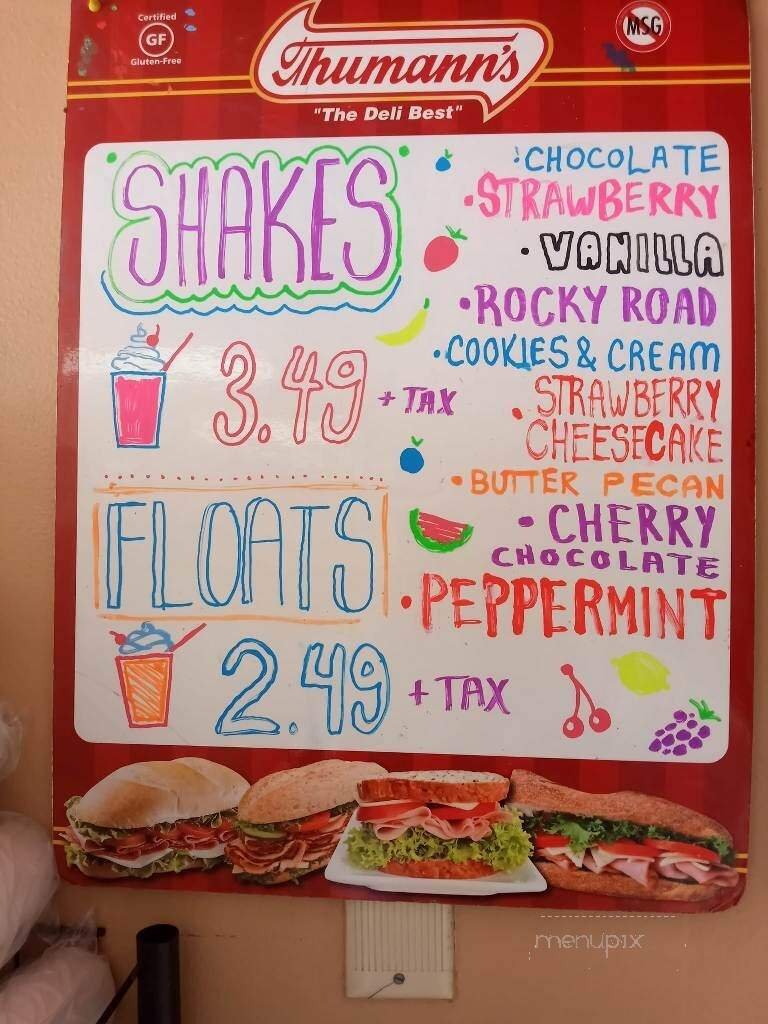 Certified
GF
Gluten-Free
Thumann's
"The Deli Best"
MSG
SHAKES
3.49 + TAX
FLOATS
2.49 + TAX
• CHOCOLATE
• STRAWBERRY
• VANILLA
• ROCKY ROAD
• COOKIES & CREAM
• STRAWBERRY
CHEESECAKE
• BUTTER PECAN
• CHERRY
CHOCOLATE
• PEPPERMINT
menupix